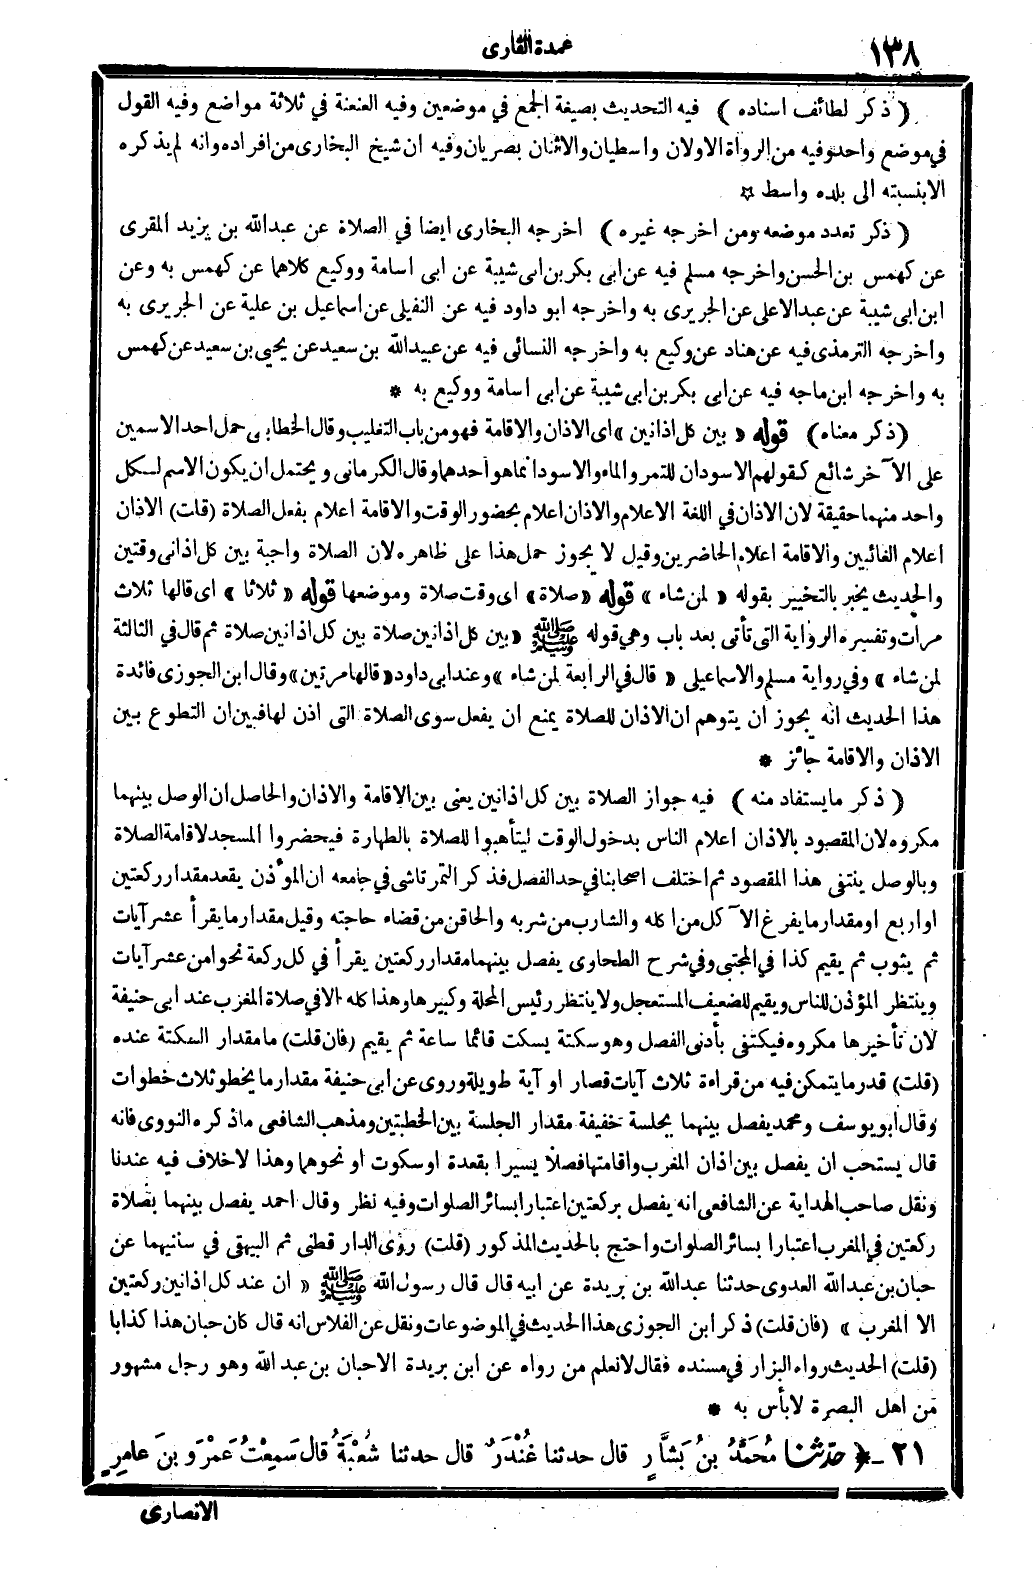 ١٣٨
عمدة القارى
( ذكر لطائف اسناده ) فيه التحديث بصيغة الجمع في موضعين وفيه العنعنة في ثلاثة مواضع وفيه القول
في موضع واحد وفيه من الرواة الاولان واسطيان والاثنان بصريان وفيه ان شيخ البخارى من افراده وانه لم يذكره
الا بنسبته الى بلده واسط ☆
( ذكر تعدد موضعه ومن اخرجه غيره ) اخرجه البخارى ايضا في الصلاة عن عبدالله بن يزيد المقرى
عن كهمس بن الحسن واخرجه مسلم فيه عن ابى بكر بن ابى شيبة عن ابى اسامة ووكيع كلاهما عن كهمس به وعن
ابن ابى شيبة عن عبد الاعلى عن الجريرى به واخرجه ابو داود فيه عن النفيلى عن اسماعيل بن علية عن الجريرى به
واخرجه الترمذى فيه عن هناد عن وكيع به واخرجه النسائى فيه عن عبيدالله بن سعيد عن يحيى بن سعيد عن كهمس
به واخرجه ابن ماجه فيه عن ابى بكر بن ابى شيبة عن ابى اسامة ووكيع به *
(ذكر معناه) قوله « بين كل اذانين » اى الاذان والاقامة فهو من باب التغليب وقال الخطابى حمل احد الاسمين
على الآخر شائع كقولهم الاسودان للتمر والماء والاسود انما هو احدهما وقال الكرمانى ويحتمل ان يكون الاسم لكل
واحد منهما حقيقة لان الاذان في اللغة الاعلام والاذان اعلام بحضور الوقت والاقامة اعلام بفعل الصلاة (قلت) الاذان
اعلام الغائبين والاقامة اعلام الحاضرين وقيل لا يجوز حمل هذا على ظاهره لان الصلاة واجبة بين كل اذانى وقتين
والحديث يخبر بالتخيير بقوله « لمن شاء » قوله « صلاة » اى وقت صلاة وموضعها قوله « ثلاثا » اى قالها ثلاث
مرات وتفسيره الرواية التى تأتى بعد باب وهى قوله ﷺ « بين كل اذانين صلاة بين كل اذانين صلاة ثم قال في الثالثة
لمن شاء » وفي رواية مسلم والاسماعيلى « قال في الرابعة لمن شاء » وعند ابى داود « قالها مرتين » وقال ابن الجوزى فائدة
هذا الحديث انه يجوز ان يتوهم ان الاذان للصلاة يمنع ان يفعل سوى الصلاة التى اذن لها فبين ان التطوع بين
الاذان والاقامة جائز *
( ذكر ما يستفاد منه ) فيه جواز الصلاة بين كل اذانين يعنى بين الاقامة والاذان والحاصل ان الوصل بينهما
مكروه لان المقصود بالاذان اعلام الناس بدخول الوقت ليتأهبوا للصلاة بالطهارة فيحضروا المسجد لاقامة الصلاة
وبالوصل ينتفى هذا المقصود ثم اختلف اصحابنا في حد الفصل فذكر التمرتاشى في جامعه ان المؤذن يقعد مقدار ركعتين
او اربع او مقدار ما يفرغ الآكل من اكله والشارب من شربه والحاقن من قضاء حاجته وقيل مقدار ما يقرأ عشر آيات
ثم يثوب ثم يقيم كذا في المجتبى وفي شرح الطحاوى يفصل بينهما مقدار ركعتين يقرأ في كل ركعة نحوا من عشر آيات
وينتظر المؤذن للناس ويقيم للضعيف المستعجل ولا ينتظر رئيس المحلة وكبيرها وهذا كله الا في صلاة المغرب عند ابى حنيفة
لان تأخيرها مكروه فيكتفى بأدنى الفصل وهو سكتة يسكت قائما ساعة ثم يقيم (فان قلت) ما مقدار السكتة عنده
(قلت) قدر ما يتمكن فيه من قراءة ثلاث آيات قصار او آية طويلة وروى عن ابى حنيفة مقدار ما يخطو ثلاث خطوات
وقال ابو يوسف ومحمد يفصل بينهما بجلسة خفيفة مقدار الجلسة بين الخطبتين ومذهب الشافعى ما ذكره النووى فانه
قال يستحب ان يفصل بين اذان المغرب واقامتها فصلا يسيرا بقعدة او سكوت او نحوهما وهذا لا خلاف فيه عندنا
ونقل صاحب الهداية عن الشافعى انه يفصل بركعتين اعتبارا بسائر الصلوات وفيه نظر وقال احمد يفصل بينهما بصلاة
ركعتين في المغرب اعتبارا بسائر الصلوات واحتج بالحديث المذكور (قلت) روى الدارقطنى ثم البيهقى في سنيهما عن
حبان بن عبدالله العدوى حدثنا عبدالله بن بريدة عن ابيه قال قال رسول الله ﷺ « ان عند كل اذانين ركعتين
الا المغرب » (فان قلت) ذكر ابن الجوزى هذا الحديث في الموضوعات ونقل عن الفلاس انه قال كان حبان هذا كذابا
(قلت) الحديث رواه البزار في مسنده فقال لا نعلم من رواه عن ابن بريدة الا حبان بن عبدالله وهو رجل مشهور
من اهل البصرة لا بأس به *
٢١ - ﴿ حدثنا مُحَمَّدُ بنُ بَشَّارٍ قال حدثنا غُنْدَرٌ قال حدثنا شُعْبَةُ قال سَمِعْتُ عَمْرَو بنَ عامِرٍ
الانصارى